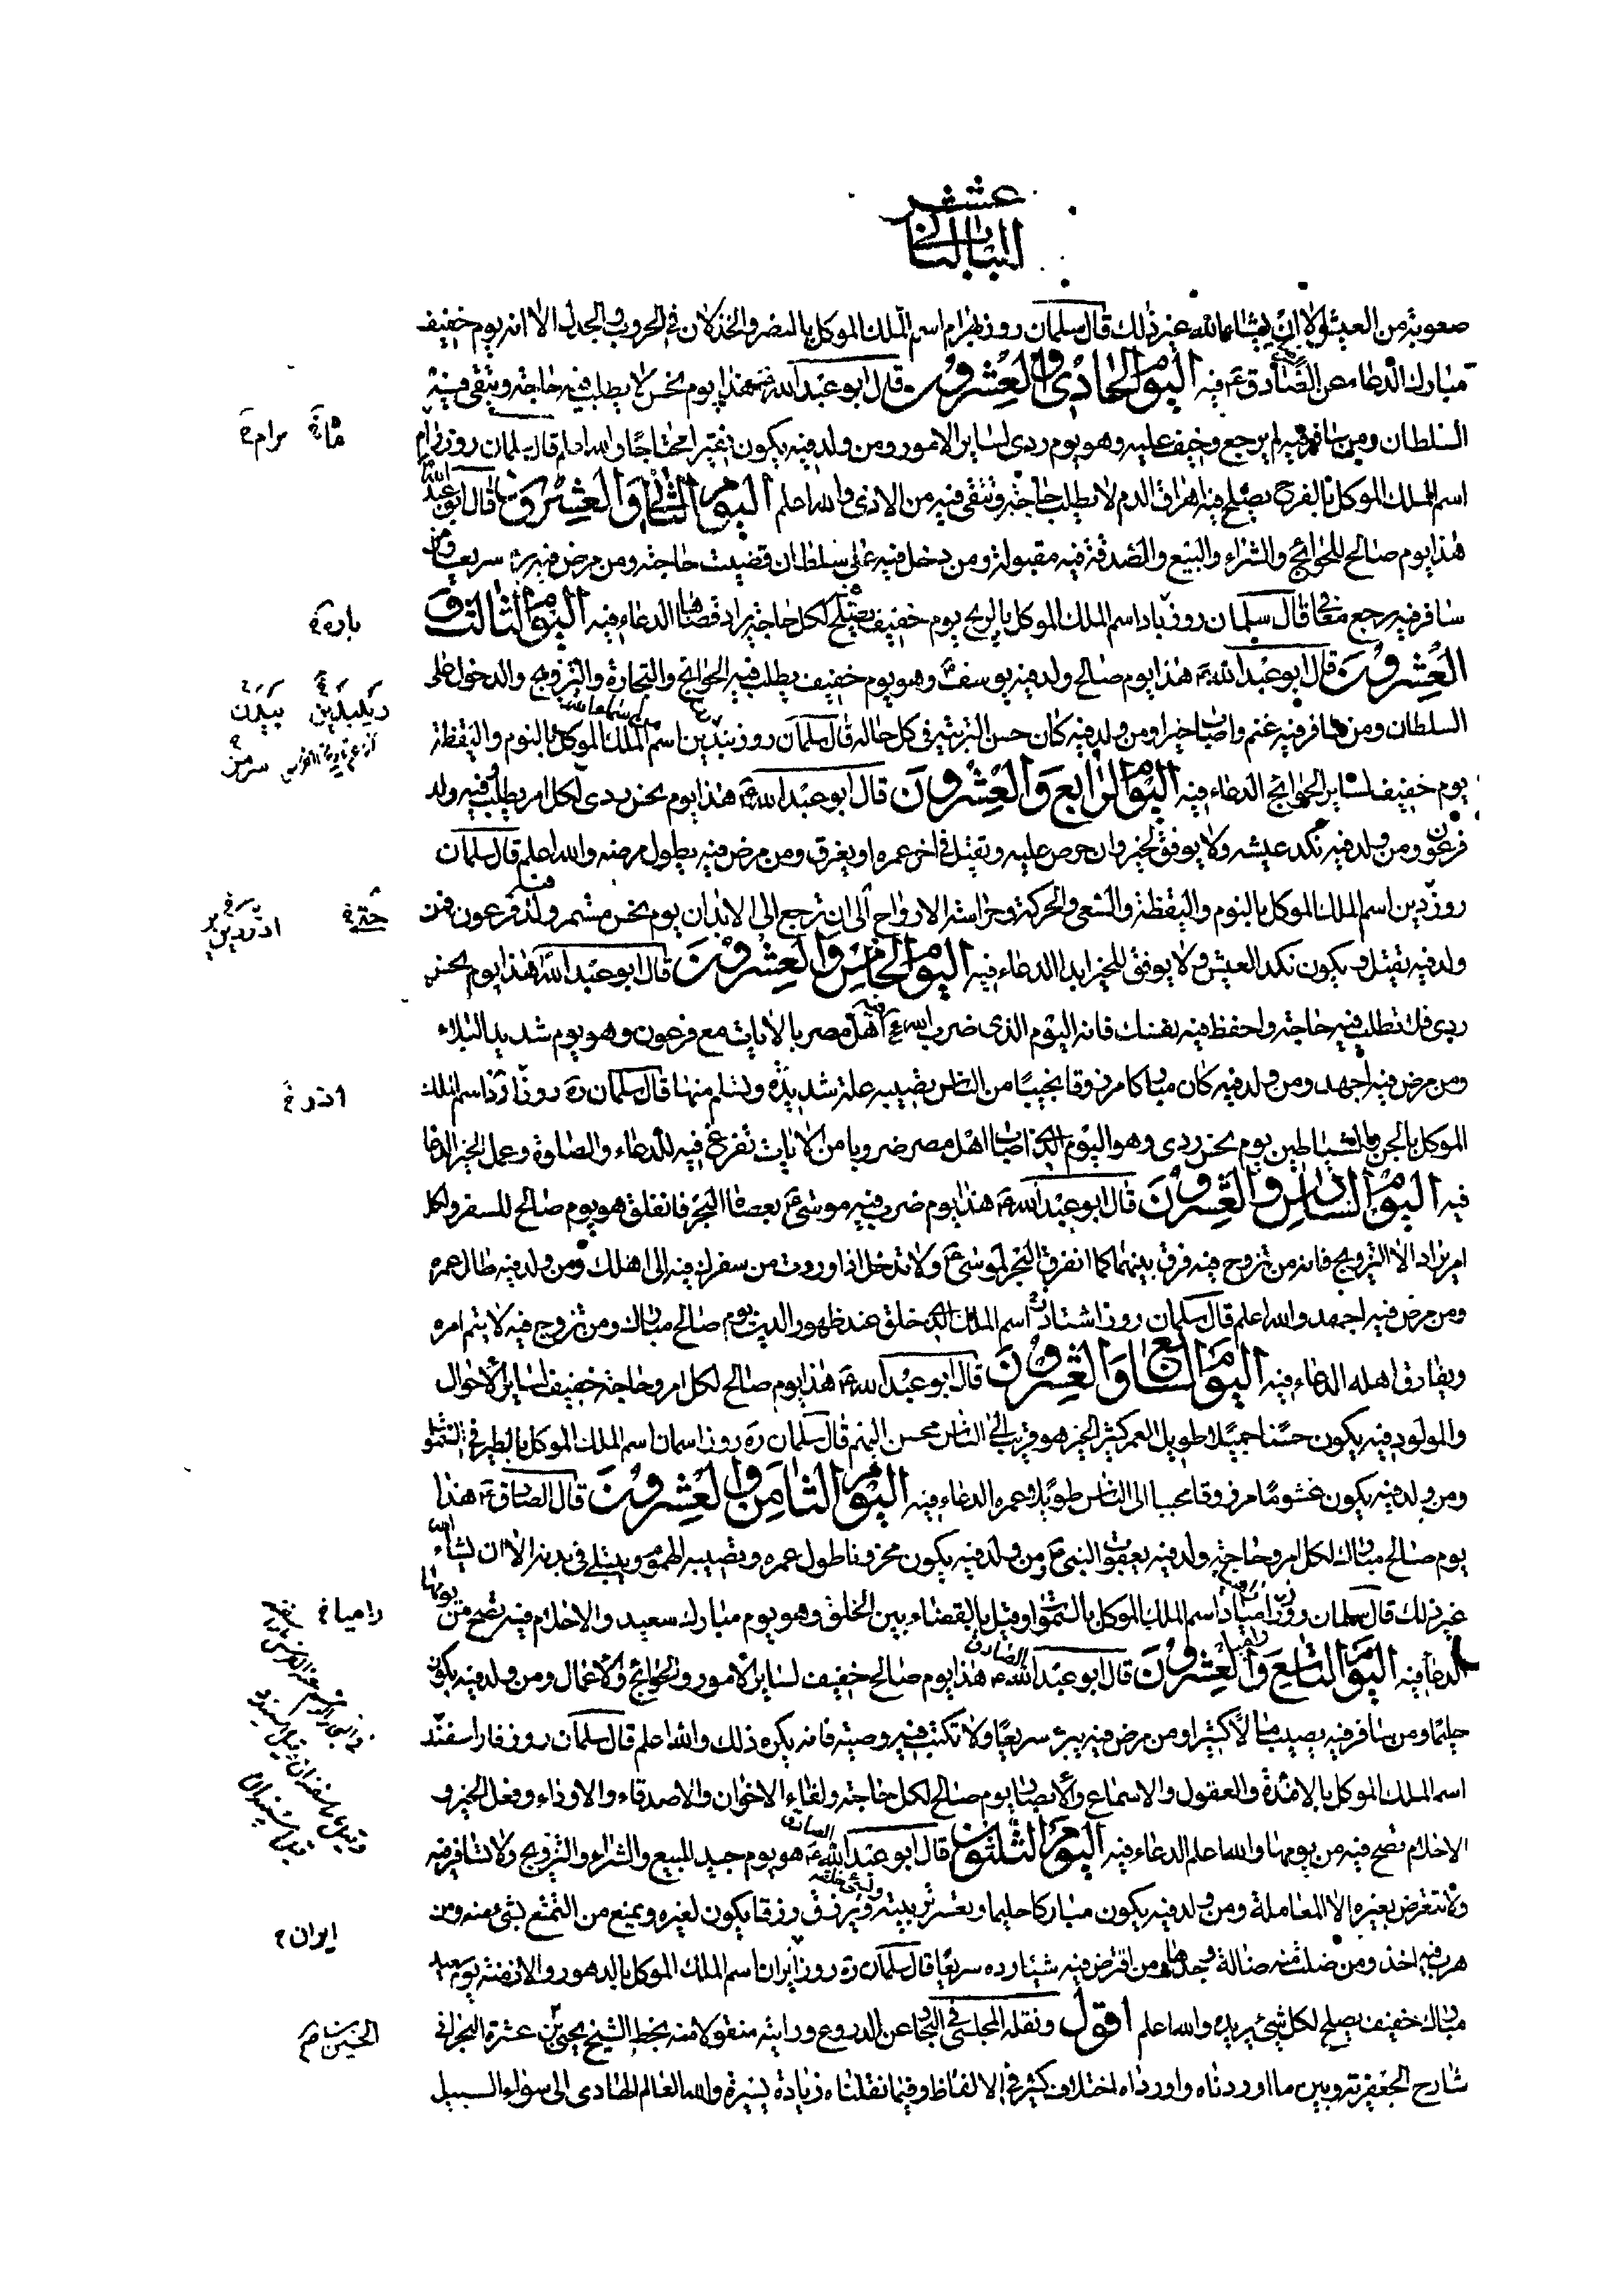 الباب الثاني عشر
صعوبة من العيش الا ان يشاء الله غير ذلك قال سلمان روز بهرام اسم الملك الموكل بالنصر والخذلان في الحروب والجدل الا انه يوم خفيف
مبارك الدعاء عن الصادق ع فيه اليوم الحادي والعشرون قال ابو عبد الله هذا يوم نحس لا يطلب فيه حاجة ويتقى فيه
السلطان ومن سافر فيه لم يرجع وخيف عليه وهو يوم ردي لساير الامور ومن ولد فيه يكون فقيرا محتاجا والله اعلم قال سلمان روز رام
اسم الملك الموكل بالفرح يصلح فيه اهراق الدم لا يطلب حاجة وتتقى فيه من الاذى والله اعلم اليوم الثاني والعشرون قال ابو عبد الله
هذا يوم صالح للحوائج والشراء والبيع والصدقة فيه مقبولة ومن دخل فيه على سلطان قضيت حاجته ومن مرض فيه برئ سريعا ومن
سافر فيه يرجع معافا قال سلمان روز باد اسم الملك الموكل بالريح يوم خفيف يصلح لكل حاجة يراد قضاها الدعاء فيه اليوم الثالث و
العشرون قال ابو عبد الله ع هذا يوم صالح ولد فيه يوسف وهو يوم خفيف يطلب فيه الحوائج والتجارة والتزويج والدخول على
السلطان ومن سافر فيه غنم واصاب خيرا ومن ولد فيه كان حسن التربية في كل حاله قال سلمان روز بندين اسم الملك الموكل بالنوم واليقظة
يوم خفيف لساير الحوائج الدعاء فيه اليوم الرابع والعشرون قال ابو عبد الله ع هذا يوم نحس ردي لكل امر يطلب فيه ولد
فرعون ومن ولد فيه نكد عيشه ولا يوفق لخير وان حرص عليه ويقتل في اخر عمره او يغرق ومن مرض فيه يطول مرضه والله اعلم قال سلمان
روز دين اسم الملك الموكل بالنوم واليقظة والسعي والحركة وحراسة الارواح الى ان ترجع الى الابدان يوم نحس مستمر ولد فرعون فمن
ولد فيه يقتل ويكون نكد العيش ولا يوفق للخير ابدا الدعاء فيه اليوم الخامس والعشرون قال ابو عبد الله هذا يوم نحس
ردي فلا تطلب فيه حاجة واحفظ فيه نفسك فانه اليوم الذي ضرب الله فيه اهل مصر بالايات مع فرعون وهو يوم شديد البلاء
ومن مرض فيه اجهد ومن ولد فيه كان مباركا مرزوقا نجيبا من الناس تصيبه علة شديدة ويسلم منها قال سلمان ره روز ارد اسم الملك
الموكل بالجن والشياطين يوم نحس ردي وهو اليوم الذي اصاب اهل مصر ضروبا من الايات تفرغ فيه للدعاء والصلوة وعمل الخير الدعا
فيه اليوم السادس والعشرون قال ابو عبد الله ع هذا يوم ضرب فيه موسى ع بعصاه البحر فانفلق هو يوم صالح للسفر ولكل
امر يراد الا التزويج فانه من تزوج فيه فرق بينهما كما انفرق البحر لموسى ع ولا تدخل اذا وردت من سفرك فيه الى اهلك ومن ولد فيه طال عمره
ومن مرض فيه اجهد والله اعلم قال سلمان روز اشتاد اسم الملك الذي خلق عند ظهور الدين يوم صالح مبارك ومن تزوج فيه لا يتم امره
ويفارق اهله الدعاء فيه اليوم السابع والعشرون قال ابو عبد الله ع هذا يوم صالح لكل امر وحاجة خفيف لساير الاحوال
والمولود فيه يكون حسنا جميلا طويل العمر كثير الخير هو قريب الى الناس محسن اليهم قال سلمان ره روز اسمان اسم الملك الموكل بالطير في السموات
ومن ولد فيه يكون غشوما مرزوقا محببا الى الناس طويلا عمره الدعاء فيه اليوم الثامن والعشرون قال الصادق ع هذا
يوم صالح مبارك لكل امر وحاجة ولد فيه يعقوب النبي ع ومن ولد فيه يكون محزونا طول عمره وتصيبه الهموم ويبتلى في بدنه الا ان يشاء الله
غير ذلك قال سلمان روز رامياد اسم الملك الموكل بالسموات وقيل بالقضاء بين الخلق وهو يوم مبارك سعيد والاحلام فيه تصح من يومها
الدعاء فيه اليوم التاسع والعشرون قال ابو عبد الله الصادق ع هذا يوم صالح خفيف لساير الامور والحوائج والاعمال ومن ولد فيه يكون
حليما ومن سافر فيه يصيب مالا كثيرا ومن مرض فيه يبرئ سريعا ولا تكتب فيه وصية فانه يكره ذلك والله اعلم قال سلمان روز فاراسفند
اسم الملك الموكل بالافئدة والعقول والاسماع والابصار يوم صالح لكل حاجة ولقاء الاخوان والاصدقاء والاوداء وفعل الخير و
الاحلام تصح فيه من يومها والله اعلم الدعاء فيه اليوم الثلثون قال ابو عبد الله الصادق ع هو يوم جيد للبيع والشراء والتزويج ولا تسافر فيه
ولا تتعرض بغيره الا المعاملة ومن ولد فيه يكون مباركا حليما وتعسر تربيته ويسيء خلقه ويرزق رزقا يكون لغيره ويمنع من التمتع بشيء منه ومن
هرب فيه اخذ ومن ضلت منه ضالة وجدها ومن اقترض فيه شيئا رده سريعا قال سلمان ره روز ايران اسم الملك الموكل بالدهور والازمنة يوم سعيد
مبارك خفيف يصلح لكل شيء يريده والله اعلم اقول ونقله المجلسي في البحار عن الدروع ورايته منقولا منه بخط الشيخ يحيى بن عشرة البحراني
شارح الجعفرية وبين ما اوردناه واورداه اختلاف كثير في الالفاظ وفيما نقلناه زيادة يسيرة والله العالم الهادي الى سواء السبيل